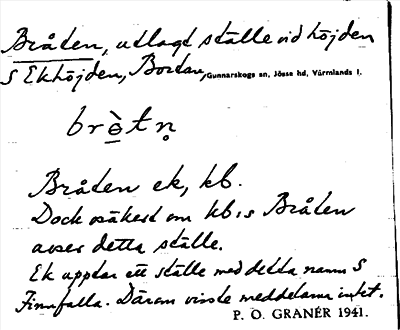 Bråten, utlagt ställe vid höjden
S Ekhöjden, Bortan, Gunnarskogs sn, Jösse hd, Värmlands l.
brò̱tn̥
Bråten ek, kb.
Dock osäkert om kb:s Bråten
avser detta ställe.
Ek upptar ett ställe med detta namn S
Finnfalla. Därom visste meddelarna intet.
P. O. GRANÉR 1941.